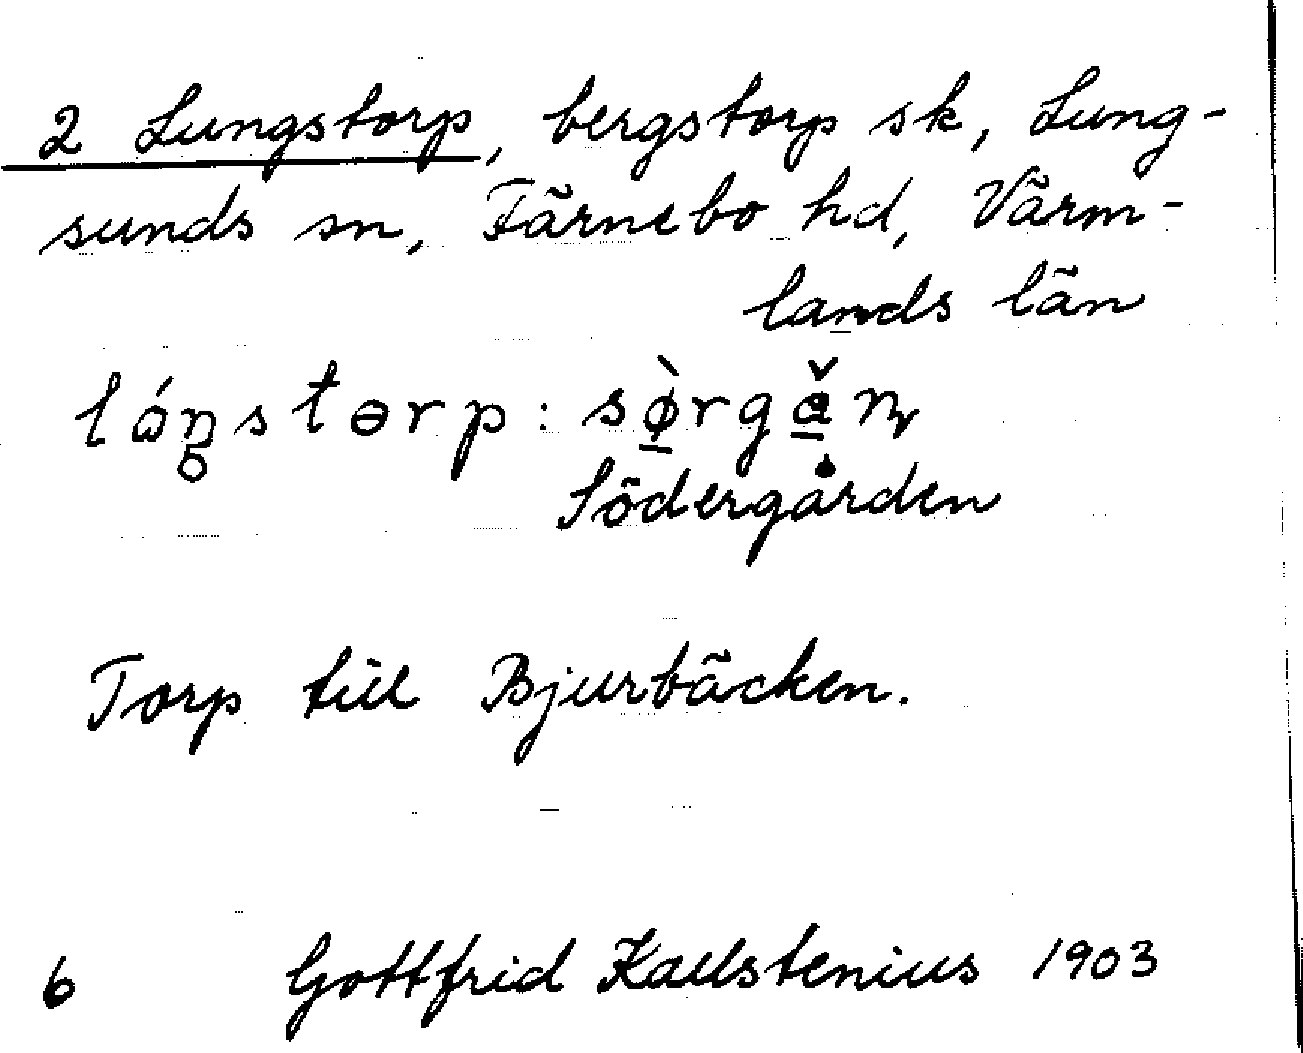 2 Lungstorp, bergstorp sk, Lung-
sunds sn, Färnebo hd, Värm-
lands län
Södergården
Torp till Bjurbäcken.
6 Gottfrid Kallstenius 1903